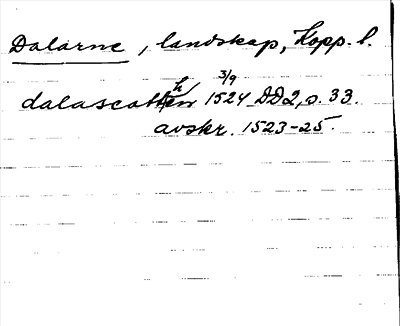 Dalarne, landskap, Kopp. l.
dalascatthen 3/9 1524 DD2, s. 33.
avskr. 1523-25.